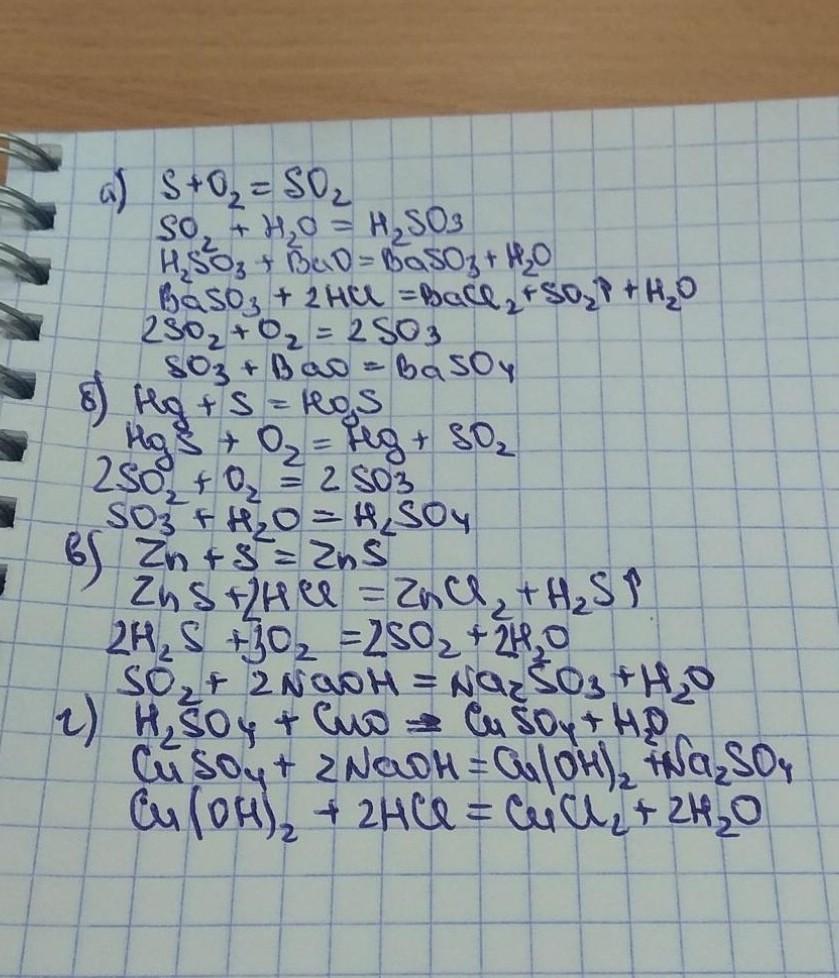 а) S + O₂ = SO₂
SO₂ + H₂O = H₂SO₃
H₂SO₃ + BaO = BaSO₃ + H₂O
BaSO₃ + 2HCl = BaCl₂ + SO₂↑ + H₂O
2SO₂ + O₂ = 2SO₃
SO₃ + BaO = BaSO₄
б) Hg + S = HgS
HgS + O₂ = Hg + SO₂
2SO₂ + O₂ = 2SO₃
SO₃ + H₂O = H₂SO₄
в) Zn + S = ZnS
ZnS + 2HCl = ZnCl₂ + H₂S↑
2H₂S + 3O₂ = 2SO₂ + 2H₂O
SO₂ + 2NaOH = Na₂SO₃ + H₂O
г) H₂SO₄ + CuO = CuSO₄ + H₂O
CuSO₄ + 2NaOH = Cu(OH)₂ + Na₂SO₄
Cu(OH)₂ + 2HCl = CuCl₂ + 2H₂O